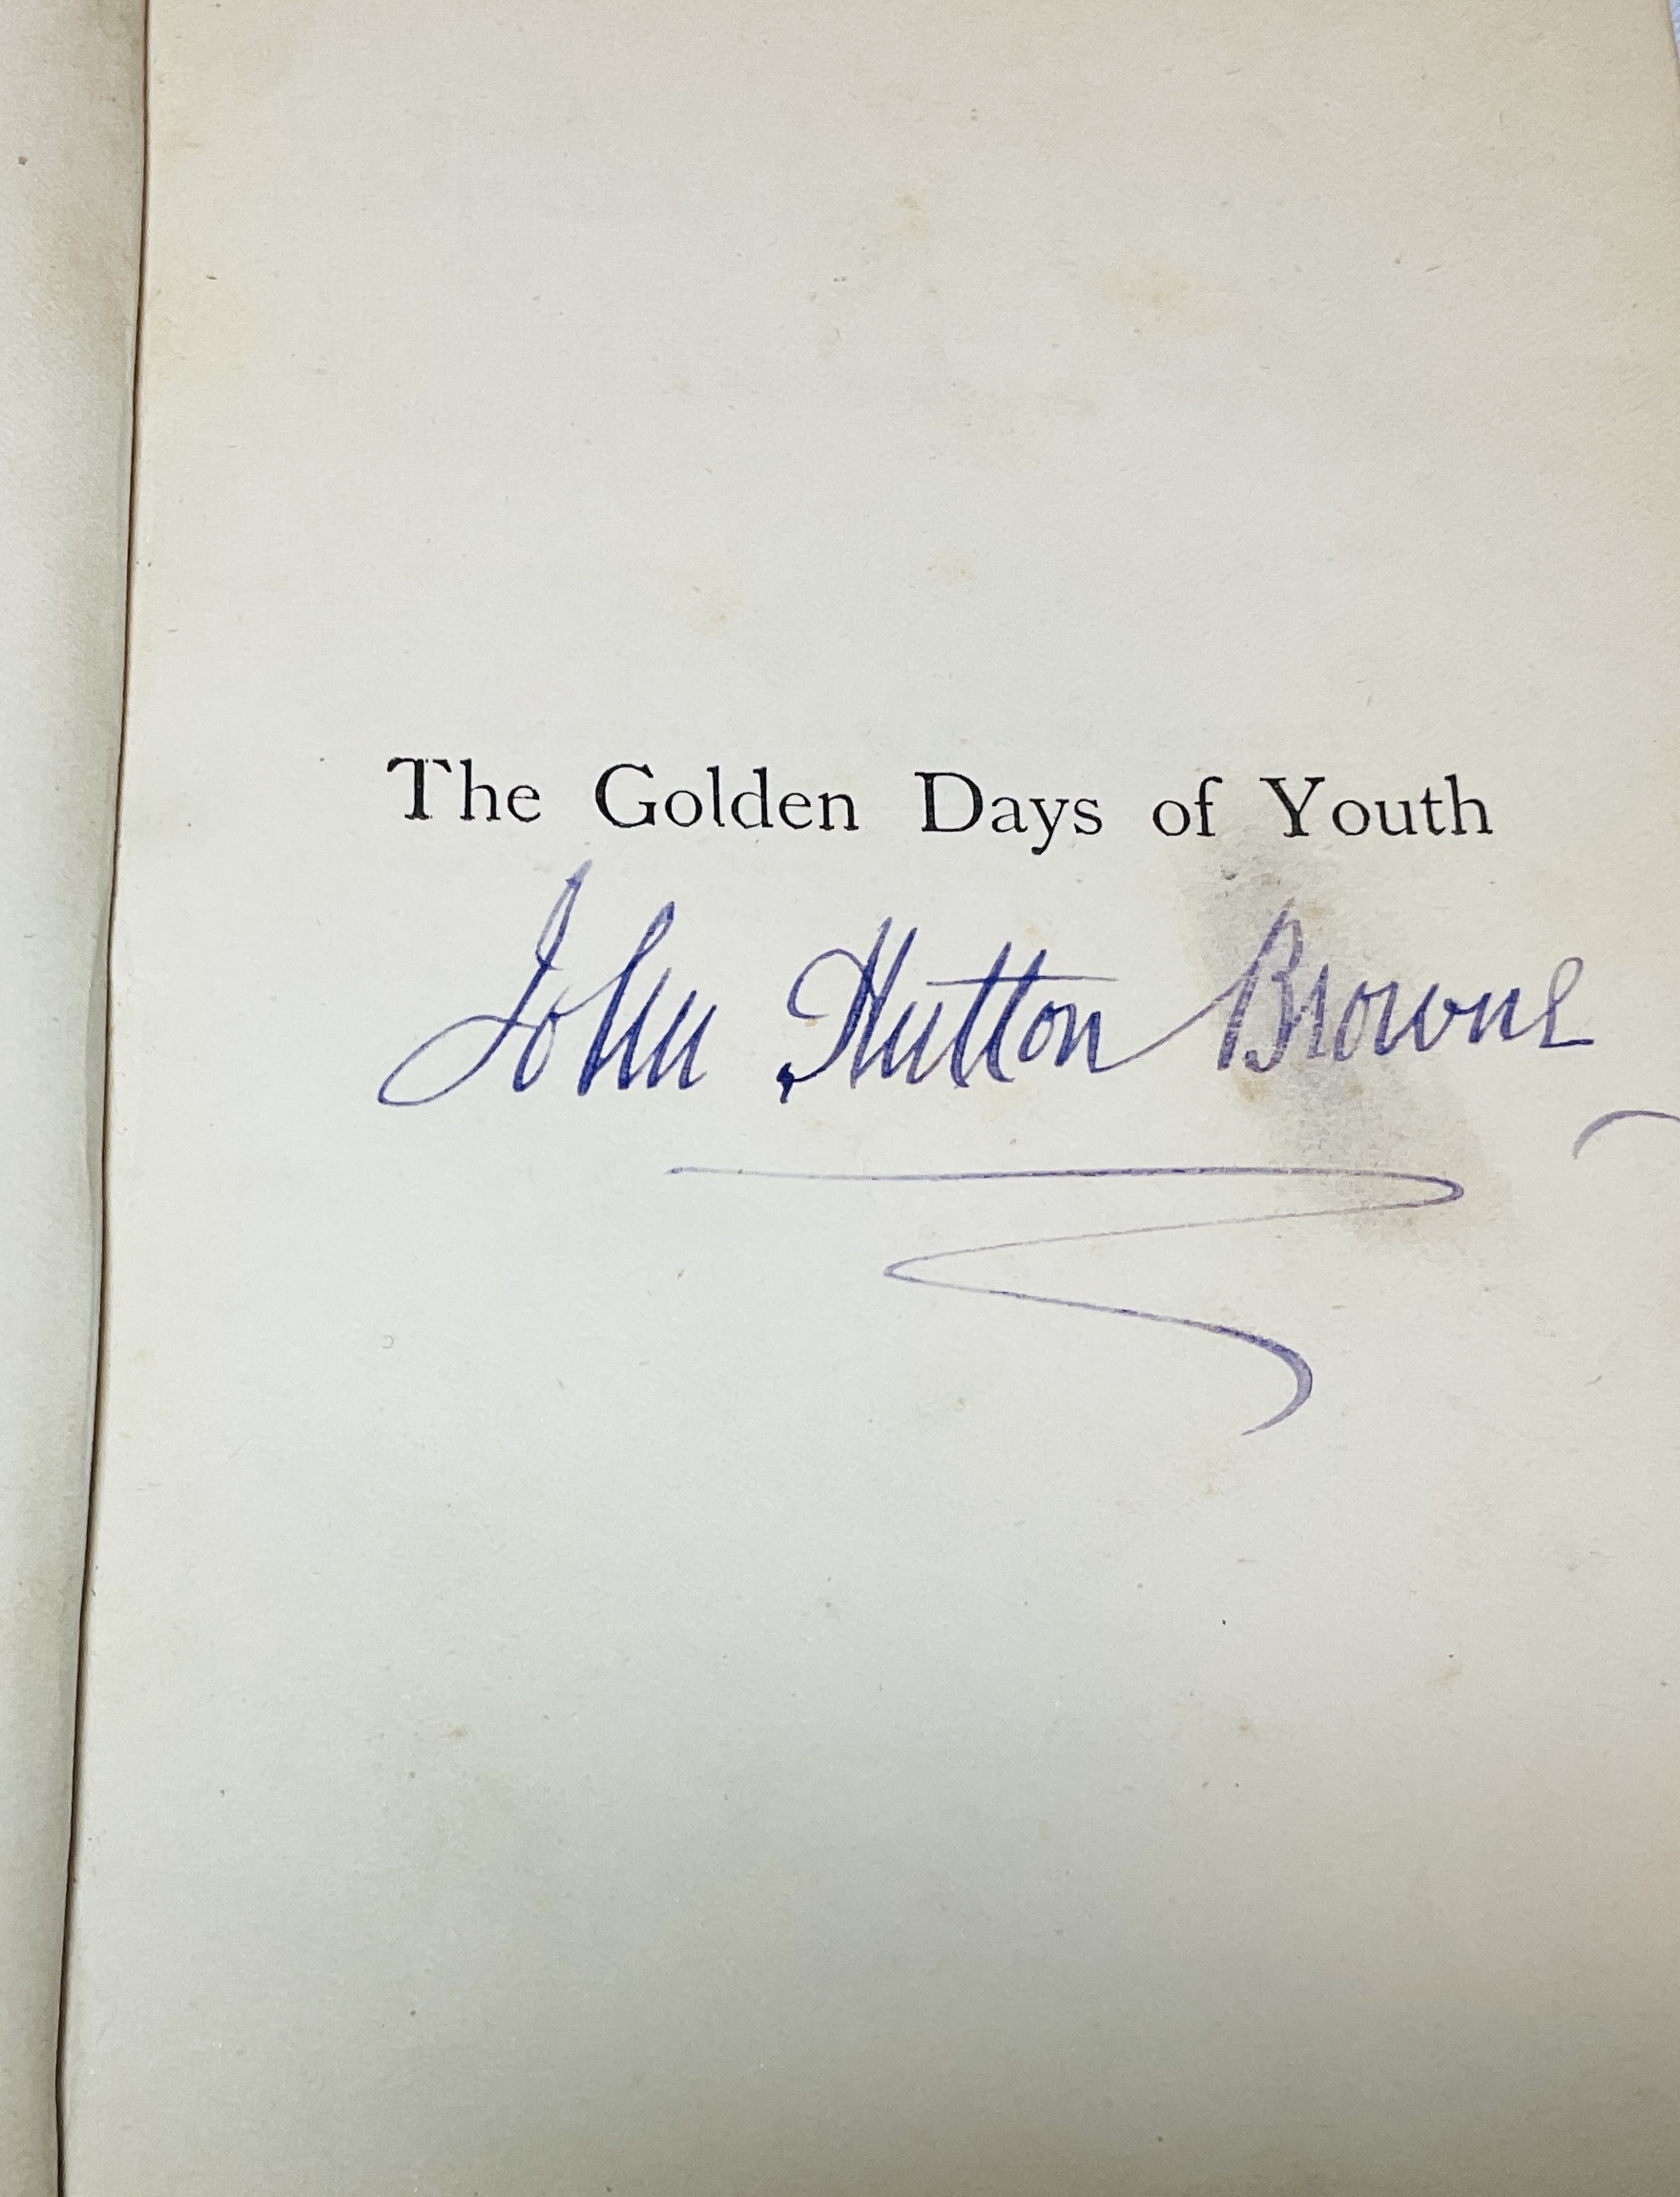 The Golden Days of Youth
John Hutton Browne